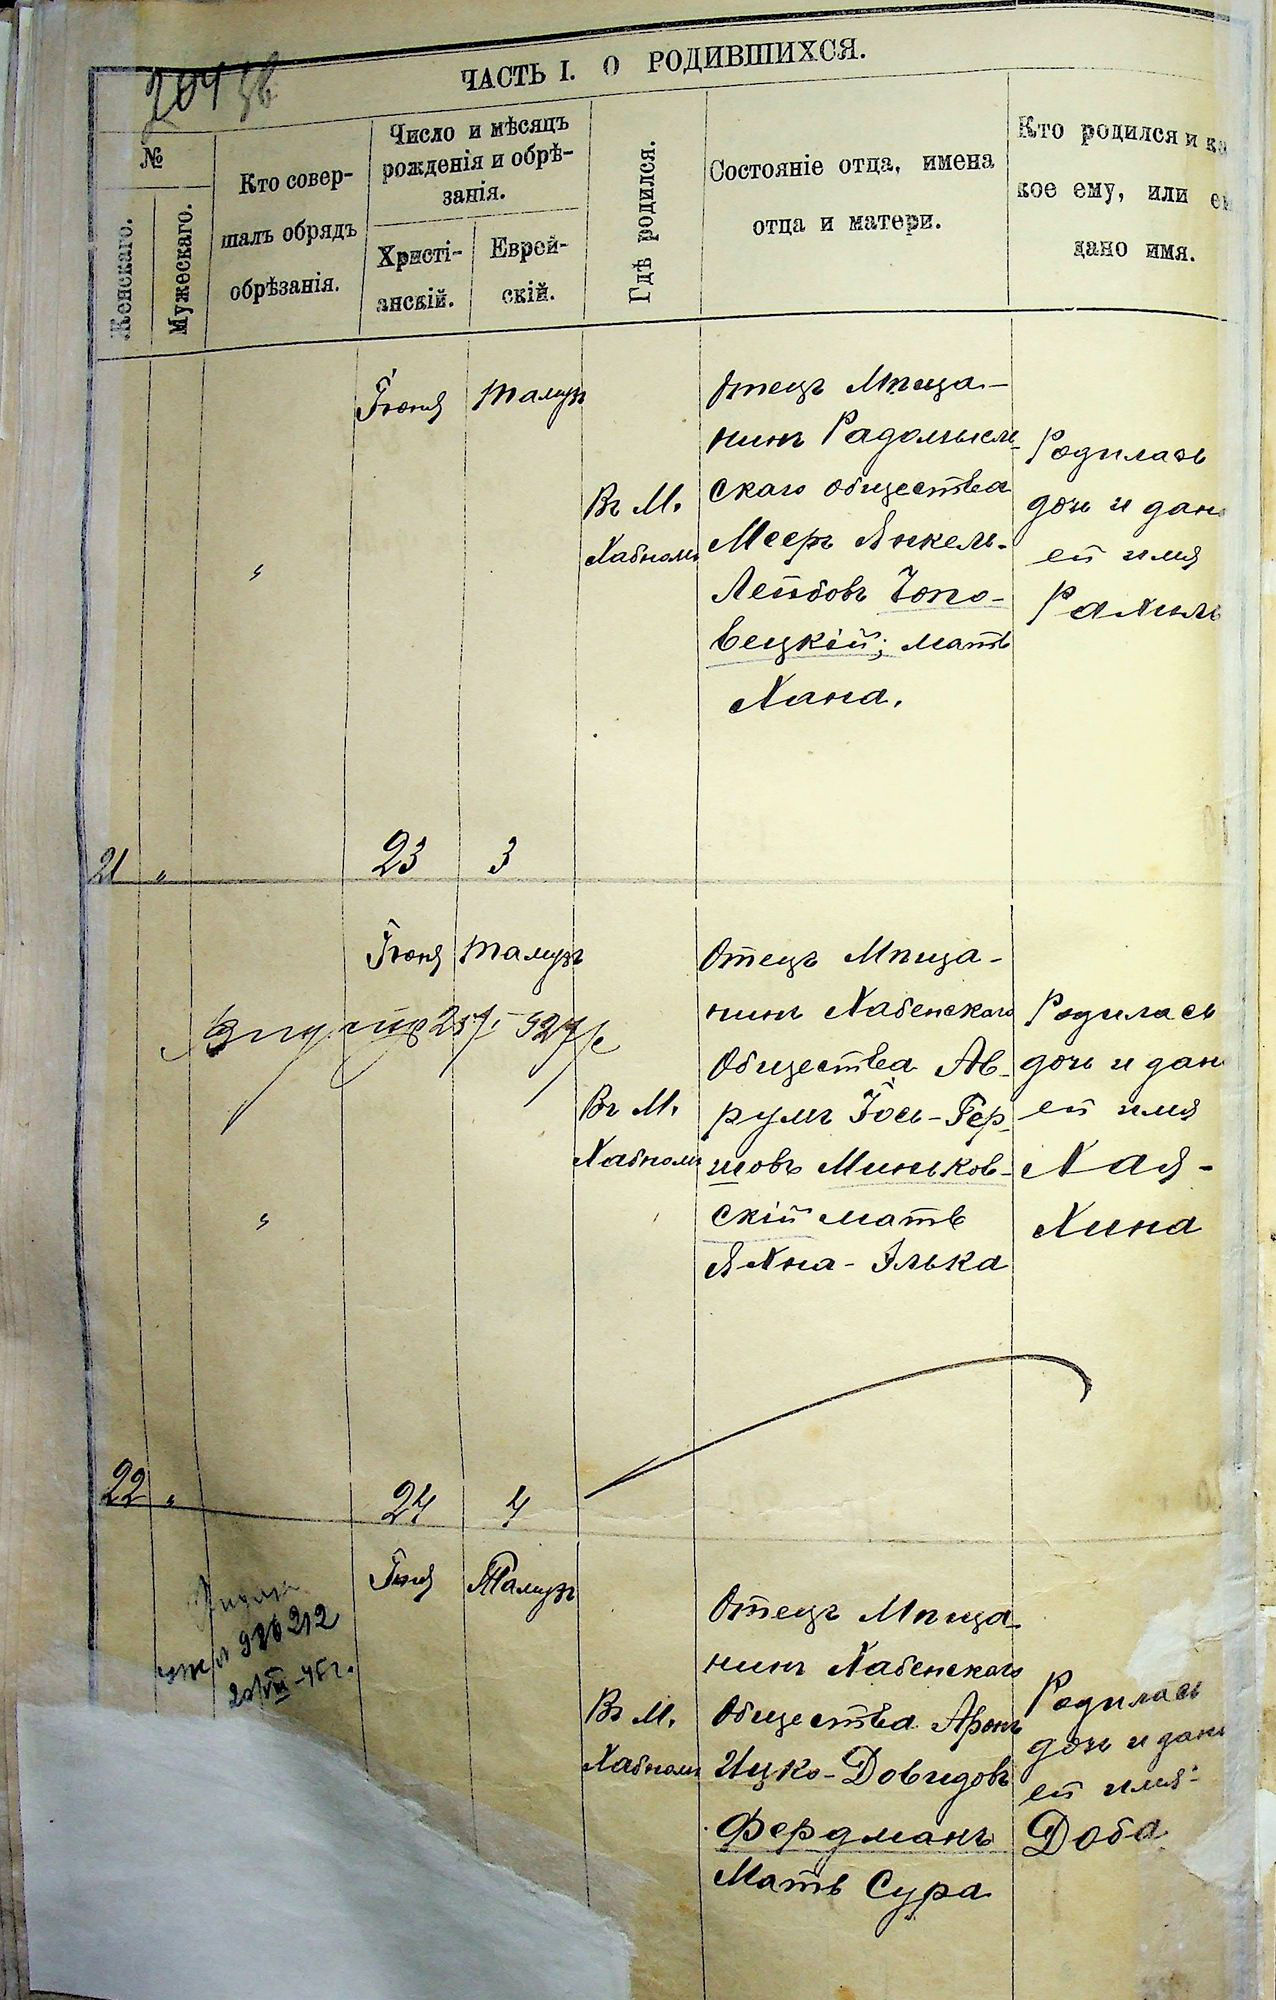 204 зв
ЧАСТЬ I. О РОДИВШИХСЯ.
№
Женскаго.
Мужескаго.
Кто совер-
шалъ обрядъ
обрѣзанія.
Число и мѣсяцъ
рожденія и обрѣ-
занія.
Христі-
анскій.
Еврей-
скій.
Гдѣ родился.
Состояніе отца, имена
отца и матери.
Кто родился и ка
кое ему, или ей
дано имя.
Іюня
Тамузъ
Въ М.
Хабномъ
Отецъ Мѣща-
нинъ Радомысль-
скаго общества
Мееръ Янкель-
Лейбовъ Топо-
вецкій; мать
Хана.
Родилась
дочь и дан
ей имя
Рахиль
21 „ 23 3
Іюня
Тамузъ
Въ М.
Хабномъ
Отецъ Мѣща-
нинъ Хабенскаго
Общества Ав-
румъ Іось-Гер-
шовъ Миньков-
скій мать
Яхна-Элька
Родилась
дочь и дан
ей имя
Хая-
Хина
22 „ 24 4
Іюня
Тамузъ
986212
20/VIII-45г.
Въ М.
Хабномъ
Отецъ Мѣща-
нинъ Хабенскаго
Общества Аронъ
Ицко-Довидовъ
Фердманъ
Мать Сура
Родилась
дочь и дано
ей имя-
Доба